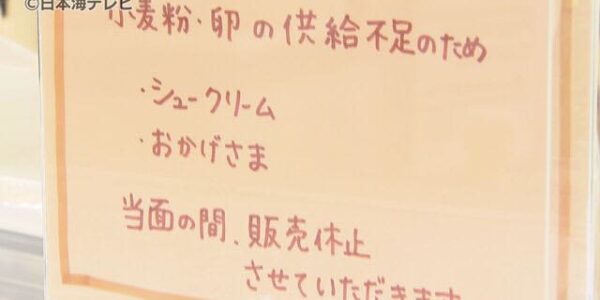 ©日本海テレビ
小麦粉・卵の供給不足のため
・シュークリーム
・おかげさま
当面の間、販売休止
させていただきます